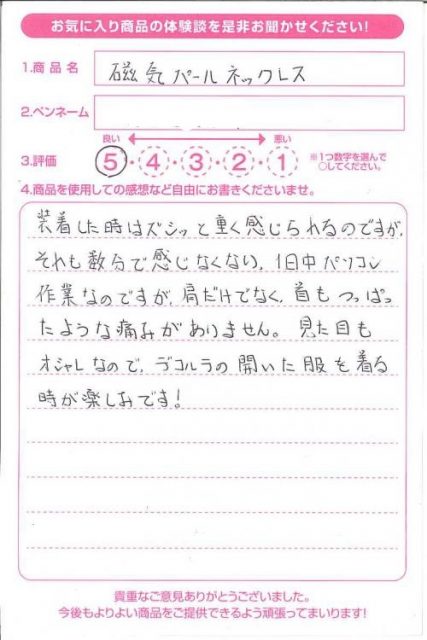 お気に入り商品の体験談を是非お聞かせください!
1.商品名 磁気パールネックレス
2.ペンネーム
良い 悪い
3.評価 5・4・3・2・1 ※1つ数字を選んで
○してください。
4.商品を使用しての感想など自由にお書きくださいませ。
装着した時はズシッと重く感じられるのですが、
それも数分で感じなくない、1日中パソコン
作業なのですが、肩だけでなく、首もつっぱっ
たような痛みがありません。見た目も
オシャレなので、デコルラの開いた服を着る
時が楽しみです!
貴重なご意見ありがとうございました。
今後もよりよい商品をご提供できるよう頑張ってまいります!